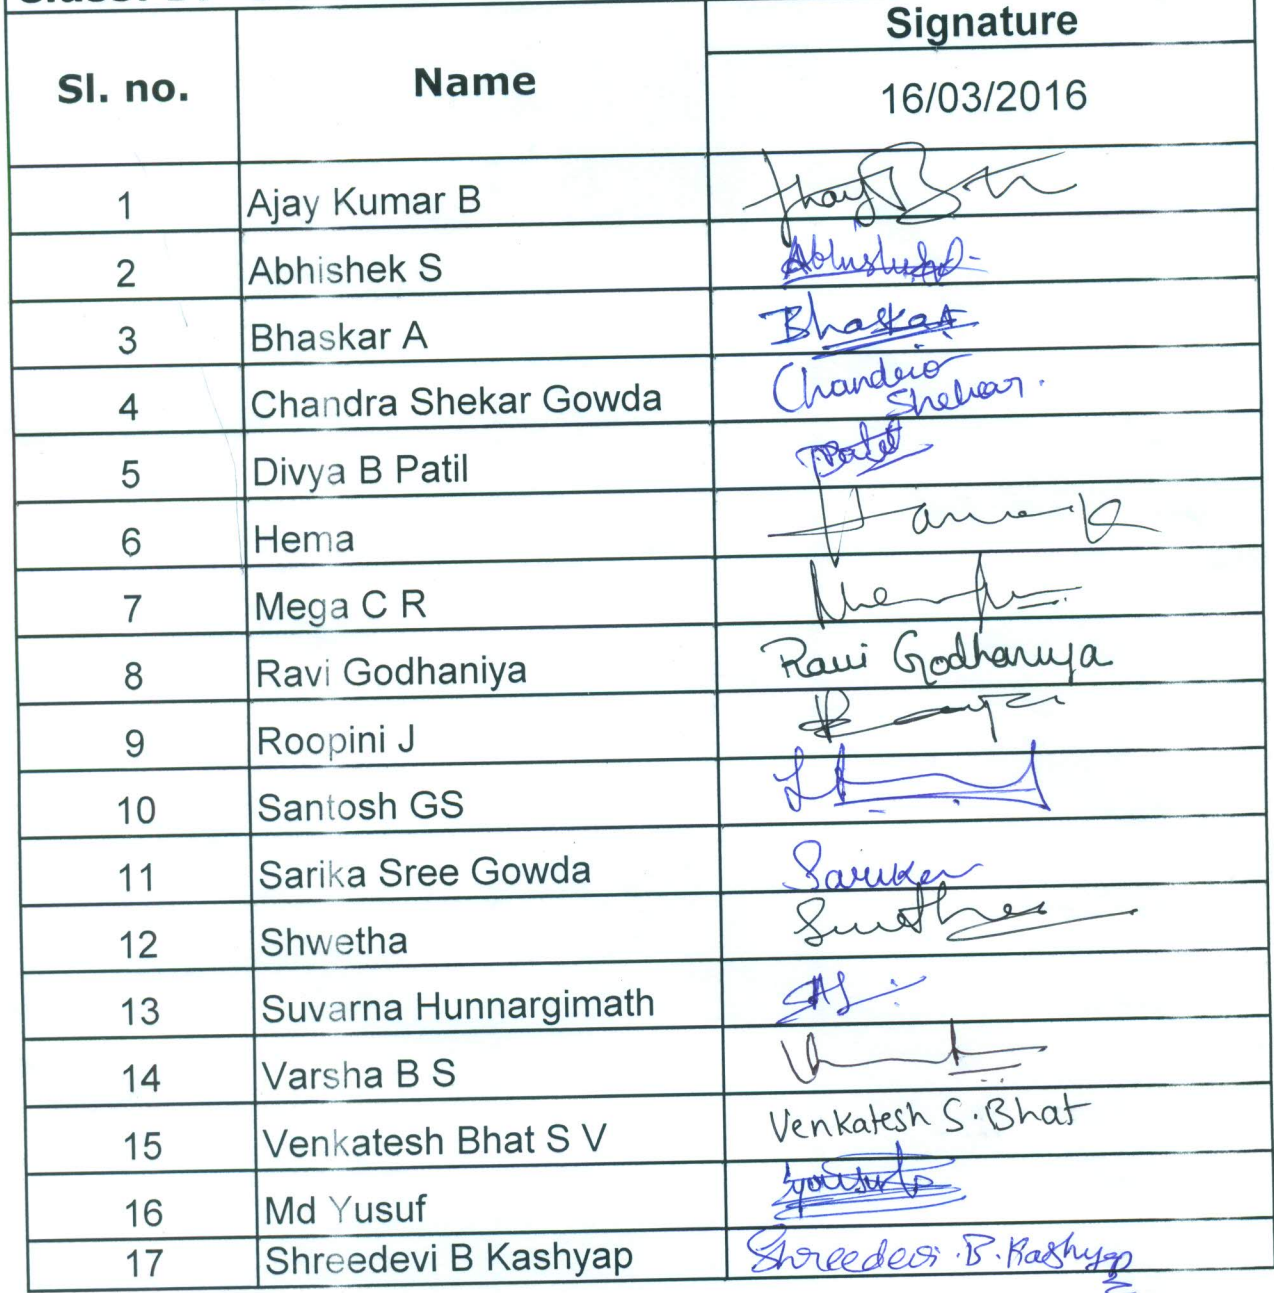 Signature
Sl. no. Name 16/03/2016
1 Ajay Kumar B
2 Abhishek S Abhishek
3 Bhaskar A Bhaskar
4 Chandra Shekar Gowda Chandra
Shekar.
5 Divya B Patil Patil
6 Hema
7 Mega C R
8 Ravi Godhaniya Ravi Godhaniya
9 Roopini J
10 Santosh GS
11 Sarika Sree Gowda Sarika
12 Shwetha
13 Suvarna Hunnargimath
14 Varsha B S
15 Venkatesh Bhat S V Venkatesh S. Bhat
16 Md Yusuf
17 Shreedevi B Kashyap Shreedevi.B.Kashyap